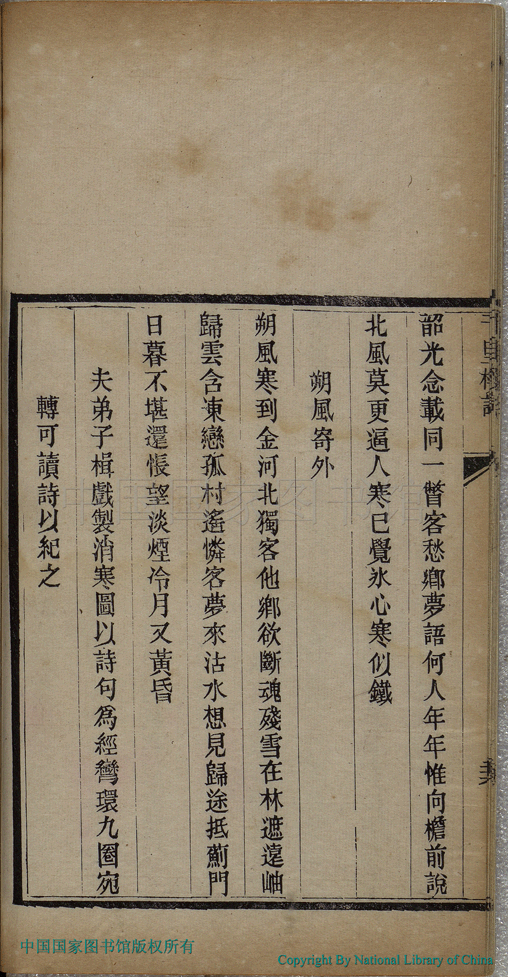 韶光念載同一瞥客愁鄉夢語何人年年惟向檐前說
北風莫更逼人寒已覺氷心寒似鐵
朔風寄外
朔風寒到金河北獨客他鄉欲斷魂殘雪在林遮遠岫
歸雲含凍戀孤村遙憐客夢來沽水想見歸途抵薊門
日暮不堪還悵望淡煙冷月又黃昏
夫弟子楫戲製消寒圖以詩句為經彎環九圈宛
轉可讀詩以紀之
中国国家图书馆版权所有
Copyright By National Library of China